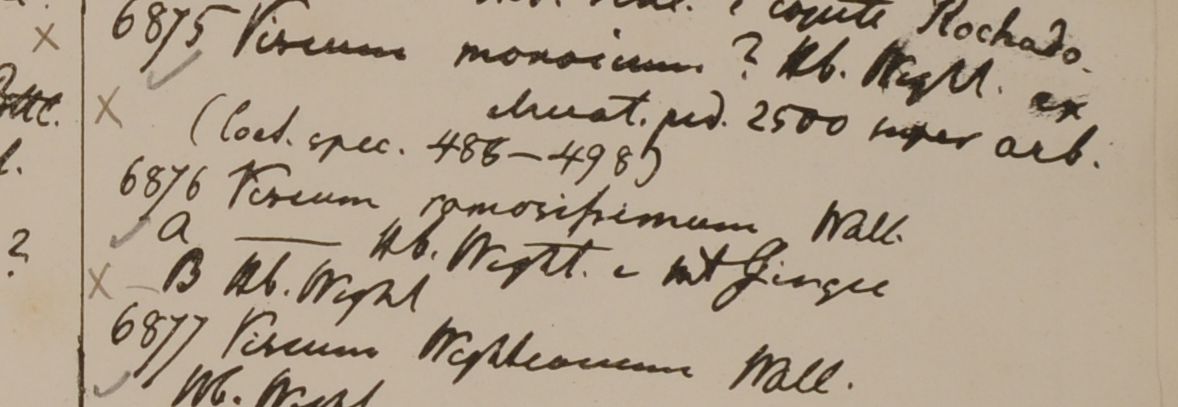 Rochado.
6875 Viscum monoicum ? Hb. Wight. ex
elevat. ped. 2500 super arb.
(Coel. spec. 486—498)
6876 Viscum ramosissimum Wall.
a — Hb. Wight. e mt Gingee
B Hb. Wight
6877 Viscum Wightianum Wall.
Hb. Wight